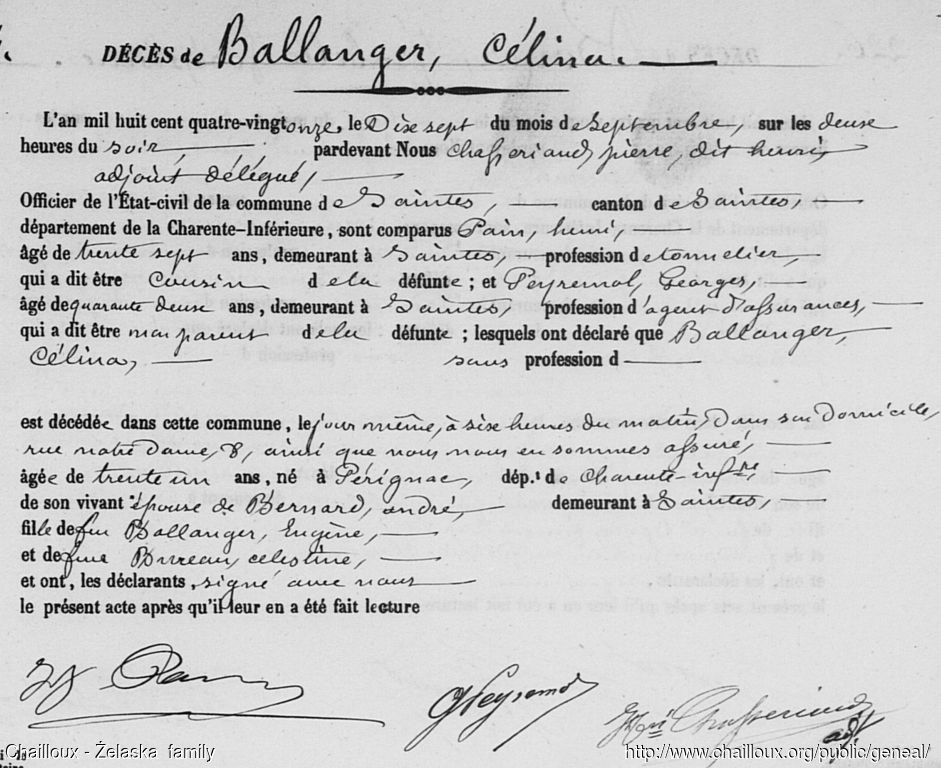 DÉCÈS de Ballanger, Célina.
L'an mil huit cent quatre-vingt onze, le Dixe sept du mois de Septembre, sur les deuxe
heures du soir, pardevant Nous Chasseriaud, pierre, dit henri,
adjoint délégué,
Officier de l'État-civil de la commune de Saintes, canton de Saintes,
département de la Charente-Inférieure, sont comparus Pain, henri,
âgé de trente sept ans, demeurant à Saintes, profession de tonnelier,
qui a dit être Cousin de la défunte ; et Peyremol, Georges,
âgé de quarante deuxe ans, demeurant à Saintes, profession d'agent d'assurances,
qui a dit être non parent de la défunte ; lesquels ont déclaré que Ballanger,
Célina, sans profession d
est décédée dans cette commune, le jour même, à sixe heures du matin, dans son domicile,
rue notre Dame, 8, ainsi que nous nous en sommes assuré,
âgée de trente un ans, né à Pérignac, dép.t de Charente-infre
de son vivant épouse de Bernard, andré, demeurant à Saintes,
fille de feu Ballanger, Eugène,
et de feue Bureau, celestine,
et ont, les déclarants, signé avec nous
le présent acte après qu'il leur en a été fait lecture
Pain
GPeyremol
Hri Chasseriaud
adjt
Chailloux - Żelaska family
http://www.chailloux.org/public/geneal/